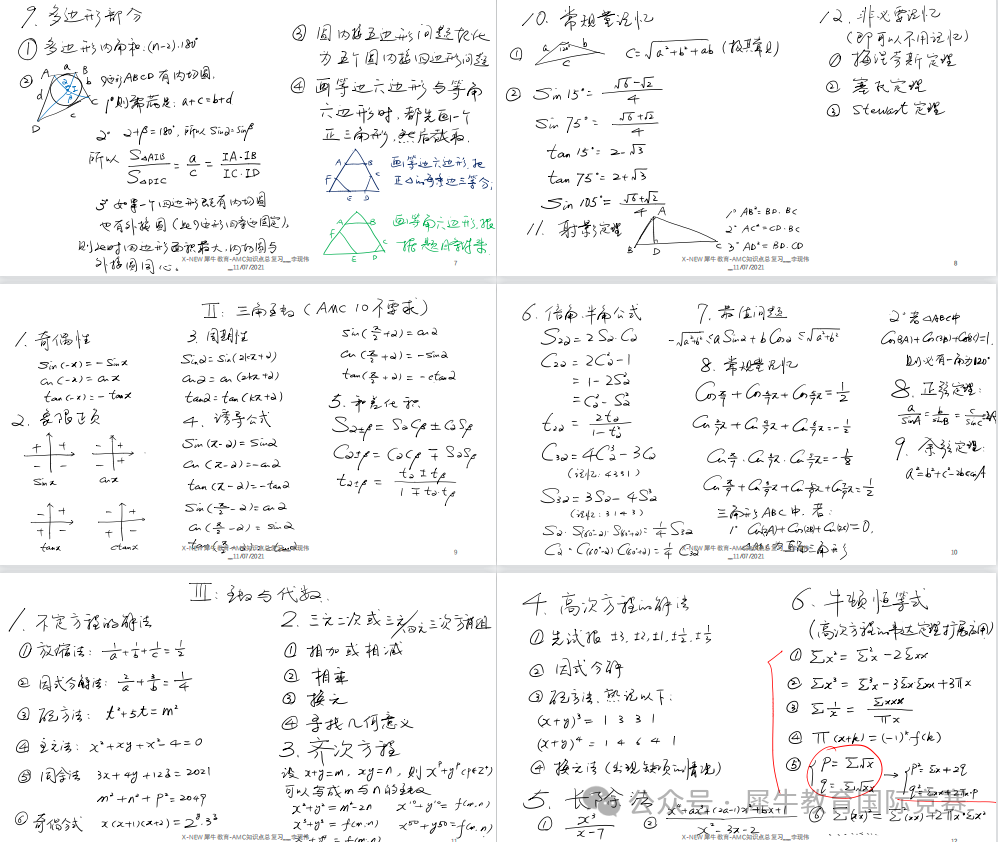 9. 多边形部分
① 多边形内角和: (n-2)·180°
② 四边形ABCD有内切圆,
1° 则常满足: a+c=b+d
2° 2+β=180°, 所以 Sin2=Sinβ
所以 S△AIB/S△DIC = a/c = IA·IB/IC·ID
3° 如果一个四边形既有内切圆
也有外接圆(此时边形四条边固定),
则此时四边形面积最大, 内切圆与
外接圆同心.
③ 圆内接五边形问题转化
为五个圆内接四边形问题
④ 画等边六边形与等角
六边形时, 都先画一个
正三角形, 然后截取.
画等边六边形, 把
正△的每条边三等分;
画等角六边形, 根
据题目的结果
X-NEW 犀牛教育-AMC知识点总复习__李现伟
_11/07/2021
7
10. 常规量记忆
① C=√a²+b²+ab (极其常见)
② Sin15°= √6-√2/4
Sin75°= √6+√2/4
tan15°= 2-√3
tan75°= 2+√3
Sin105°= √6+√2/4
11. 射影定理
1° AB²=BD·BC
2° AC²=CD·BC
3° AD²=BD·CD
12. 非必要记忆
(即可以不用记忆)
① 梅涅劳斯定理
② 塞瓦定理
③ Stewart定理
X-NEW 犀牛教育-AMC知识点总复习__李现伟
_11/07/2021
8
II: 三角函数 (AMC 10不要求)
1. 奇偶性
Sin(-x)=-Sinx
cos(-x)=cosx
tan(-x)=-tanx
2. 象限正负
Sinx
cosx
tanx
ctanx
3. 周期性
Sin2=Sin(2kπ+2)
cos2=cos(2kπ+2)
tan2=tan(kπ+2)
4. 诱导公式
Sin(π-2)=Sin2
cos(π-2)=-cos2
tan(π-2)=-tan2
Sin(π/2-2)=cos2
cos(π/2-2)=Sin2
Sin(π/2+2)=cos2
cos(π/2+2)=-Sin2
tan(π/2+2)=-ctan2
5. 和差化积
S2±β = S2Cβ ± C2Sβ
C2±β = C2Cβ ∓ S2Sβ
t2±β = t2±tβ/1∓t2·tβ
X-NEW 犀牛教育-AMC知识点总复习__李现伟
_11/07/2021
9
6. 倍角,半角公式
S22=2S2·C2
C22=2C²2-1
=1-2S²2
=C²2-S²2
t22= 2t2/1-t²2
C32=4C³2-3C2
(记忆: 4331)
S32=3S2-4S³2
(记忆: 3143)
S2·S(60°-2)·S(60°+2)=1/4 S32
C2·C(60°-2)·C(60°+2)=1/4 C32
7. 最值问题
-√a²+b² ≤ aSin2+bCos2 ≤ √a²+b²
8. 常规量记忆
三角形ABC中, 若:
1° Cos(2A)+Cos(2B)+Cos(2C)=0,
2° 若△ABC中
Cos(3A)+Cos(3B)+Cos(3C)=1,
则必有一角为120°
8. 正弦定理:
a/SinA = b/SinB = c/SinC = 2R
9. 余弦定理:
a²=b²+c²-2bccosA
X-NEW 犀牛教育-AMC知识点总复习__李现伟
_11/07/2021
10
III: 函数与代数.
1. 不定方程的解法
① 放缩法: 1/a+1/b+1/c=1/2
② 因式分解法: 2/a+3/b=1/4
③ 配方法: t²+5t=m²
④ 主元法: x²+xy+x²-4=0
⑤ 同余法 3x+4y+12z=2021
m²+n²+p²=2049
⑥ 奇偶分析
2. 三元二次或三元/四元三次方程组
① 相加或相减
② 相乘
③ 换元
④ 寻找几何意义
3. 齐次方程
设 x+y=m, xy=n, 则 x^p+y^p (p∈Z⁺)
可以写成m与n的函数
x²+y²=m²-2n x¹⁰+y¹⁰=f(m,n)
x³+y³=f(m,n) x⁵⁰+y⁵⁰=f(m,n)
X-NEW 犀牛教育-AMC知识点总复习__李现伟
11
4. 高次方程的解法
① 先试根 ±3, ±2, ±1, ±1/2, ±1/3
② 因式分解
③ 配方法, 熟记以下:
(x+y)³ = 1 3 3 1
(x+y)⁴ = 1 4 6 4 1
④ 换元法(出现缺项的情况)
5. 长除法
① x³/x-7
② x⁴+ax³+(2a-1)x²+6x+1/x²-3x-2
6. 牛顿恒等式
(高次方程的韦达定理扩展应用)
① Σx²=Σ²x-2Σxx
② Σx³=Σ³x-3ΣxΣxx+3πx
③ Σ1/x=Σxxx/πx
④ π(x+k)=(-1)ⁿ·f(k)
⑤ { P=Σ√x q=Σ√xx → { P²=Σx+2q q²=Σxx+2πx·P
公众号 · 犀牛教育国际竞赛
X-NEW 犀牛教育-AMC知识点总复习__李现伟
12